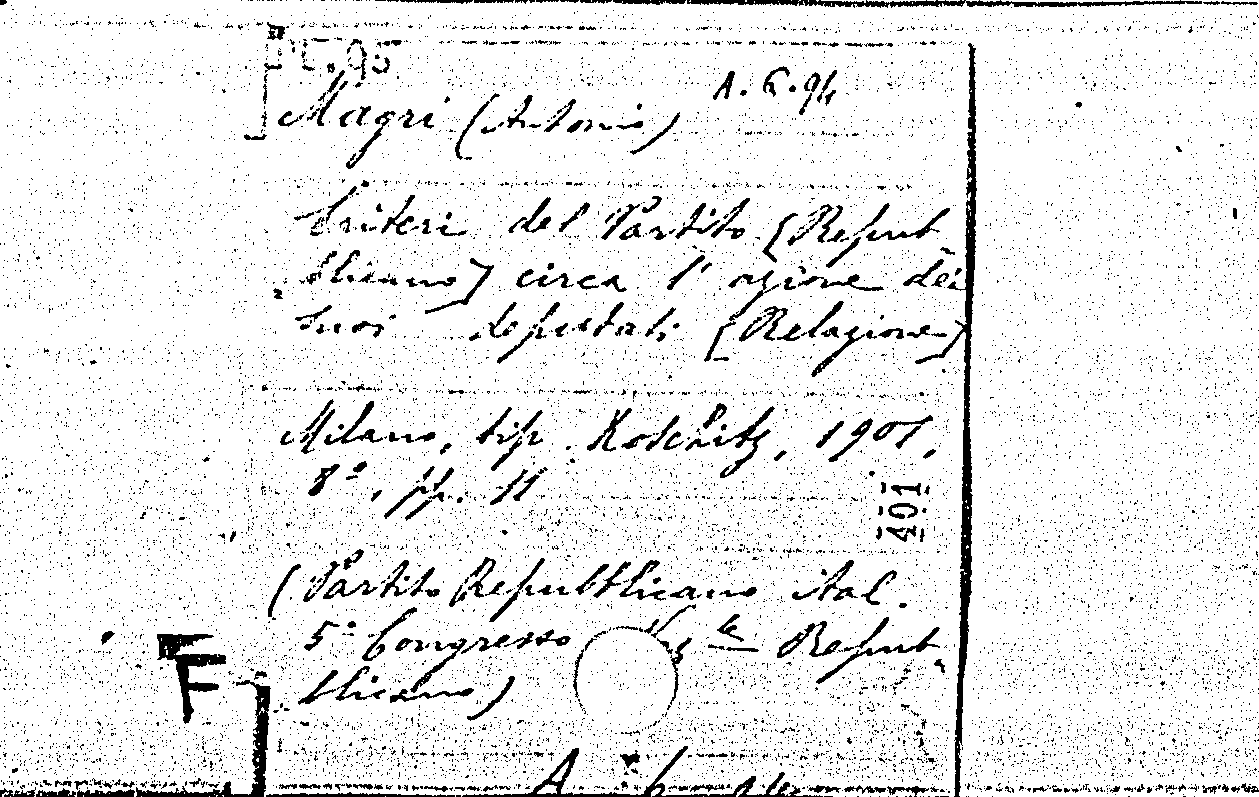 PL.95
A. 6. 94
Magri (Antonio)
Criteri del Partito [Repub-
blicano] circa l'azione dei
suoi deputati [Relazione]
Milano, tip. Koschitz, 1901,
8°, pp. 11
401
(Partito Repubblicano ital.
5° Congresso Naz le Repub-
blicano)
F
A. 6. 94